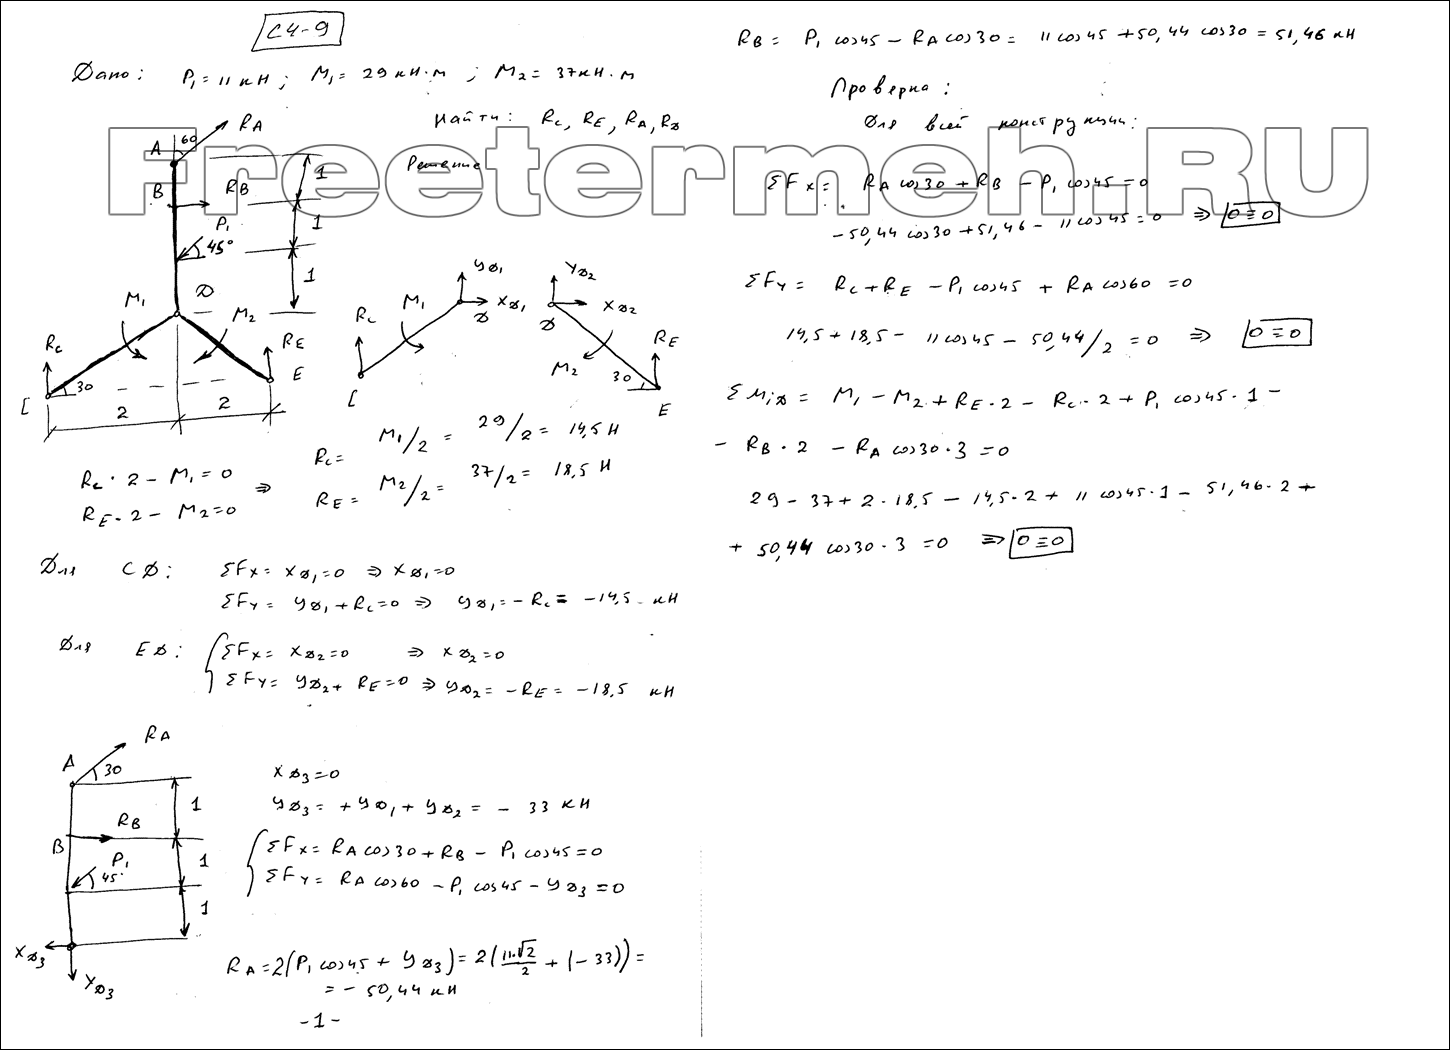 С4-9
Дано: P₁ = 11 кН ; M₁ = 29 кН·м ; M₂ = 37 кН·м
Найти: R_C, R_E, R_A, R_D
Решение
Freetermeh.RU
R_A
60
A
B
R_B
P₁
45°
1
1
1
D
M₁
M₂
R_C
R_E
C
30
E
2
2
R_C
M₁
Y_D₁
X_D₁
D
C
Y_D₂
X_D₂
D
M₂
R_E
30
E
R_C · 2 - M₁ = 0
R_E · 2 - M₂ = 0
⇒
R_C = M₁/2 = 29/2 = 14,5 Н
R_E = M₂/2 = 37/2 = 18,5 Н
Для CD: ΣF_X = X_D₁ = 0 ⇒ X_D₁ = 0
ΣF_Y = Y_D₁ + R_C = 0 ⇒ Y_D₁ = - R_C = -14,5 кН
Для ED: ΣF_X = X_D₂ = 0 ⇒ X_D₂ = 0
ΣF_Y = Y_D₂ + R_E = 0 ⇒ Y_D₂ = - R_E = -18,5 кН
R_A
A
30
1
R_B
B
P₁
45°
1
1
X_D₃
Y_D₃
X_D₃ = 0
Y_D₃ = + Y_D₁ + Y_D₂ = - 33 кН
ΣF_X = R_A cos30 + R_B - P₁ cos45 = 0
ΣF_Y = R_A cos60 - P₁ cos45 - Y_D₃ = 0
R_A = 2(P₁ cos45 + Y_D₃) = 2(11·√2/2 + (-33)) =
= - 50,44 кН
-1-
R_B = P₁ cos45 - R_A cos30 = 11 cos45 + 50,44 cos30 = 51,46 кН
Проверка:
Для всей конструкции:
ΣF_X = R_A cos30 + R_B - P₁ cos45 = 0
-50,44 cos30 + 51,46 - 11 cos45 = 0 ⇒ 0 ≡ 0
ΣF_Y = R_C + R_E - P₁ cos45 + R_A cos60 = 0
14,5 + 18,5 - 11 cos45 - 50,44/2 = 0 ⇒ 0 ≡ 0
ΣM_iD = M₁ - M₂ + R_E · 2 - R_C · 2 + P₁ cos45 · 1 -
- R_B · 2 - R_A cos30 · 3 = 0
29 - 37 + 2 · 18,5 - 14,5 · 2 + 11 cos45 · 1 - 51,46 · 2 +
+ 50,44 cos30 · 3 = 0 ⇒ 0 ≡ 0